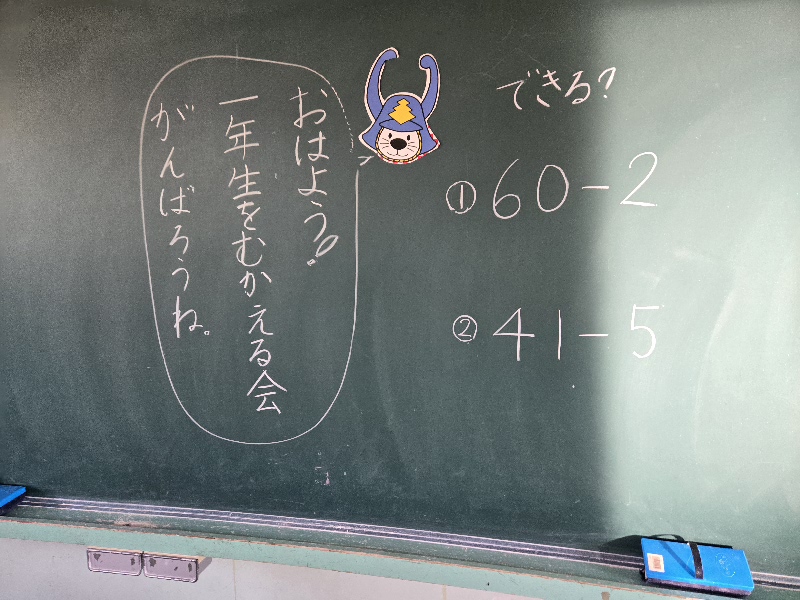 おはよう!
一年生をむかえる会
がんばろうね。
できる?
①60-2
②41-5